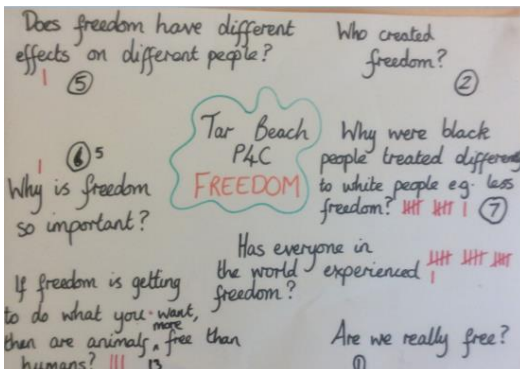 Does freedom have different
effects on different people?
5
Who created
freedom?
2
Tar Beach
P4C
FREEDOM
Why were black
people treated different
to white people e.g. less
freedom?
7
6 5
Why is freedom
so important?
Has everyone in
the world experienced
freedom?
If freedom is getting
to do what you want,
then are animals more free than
humans?
13
Are we really free?
1